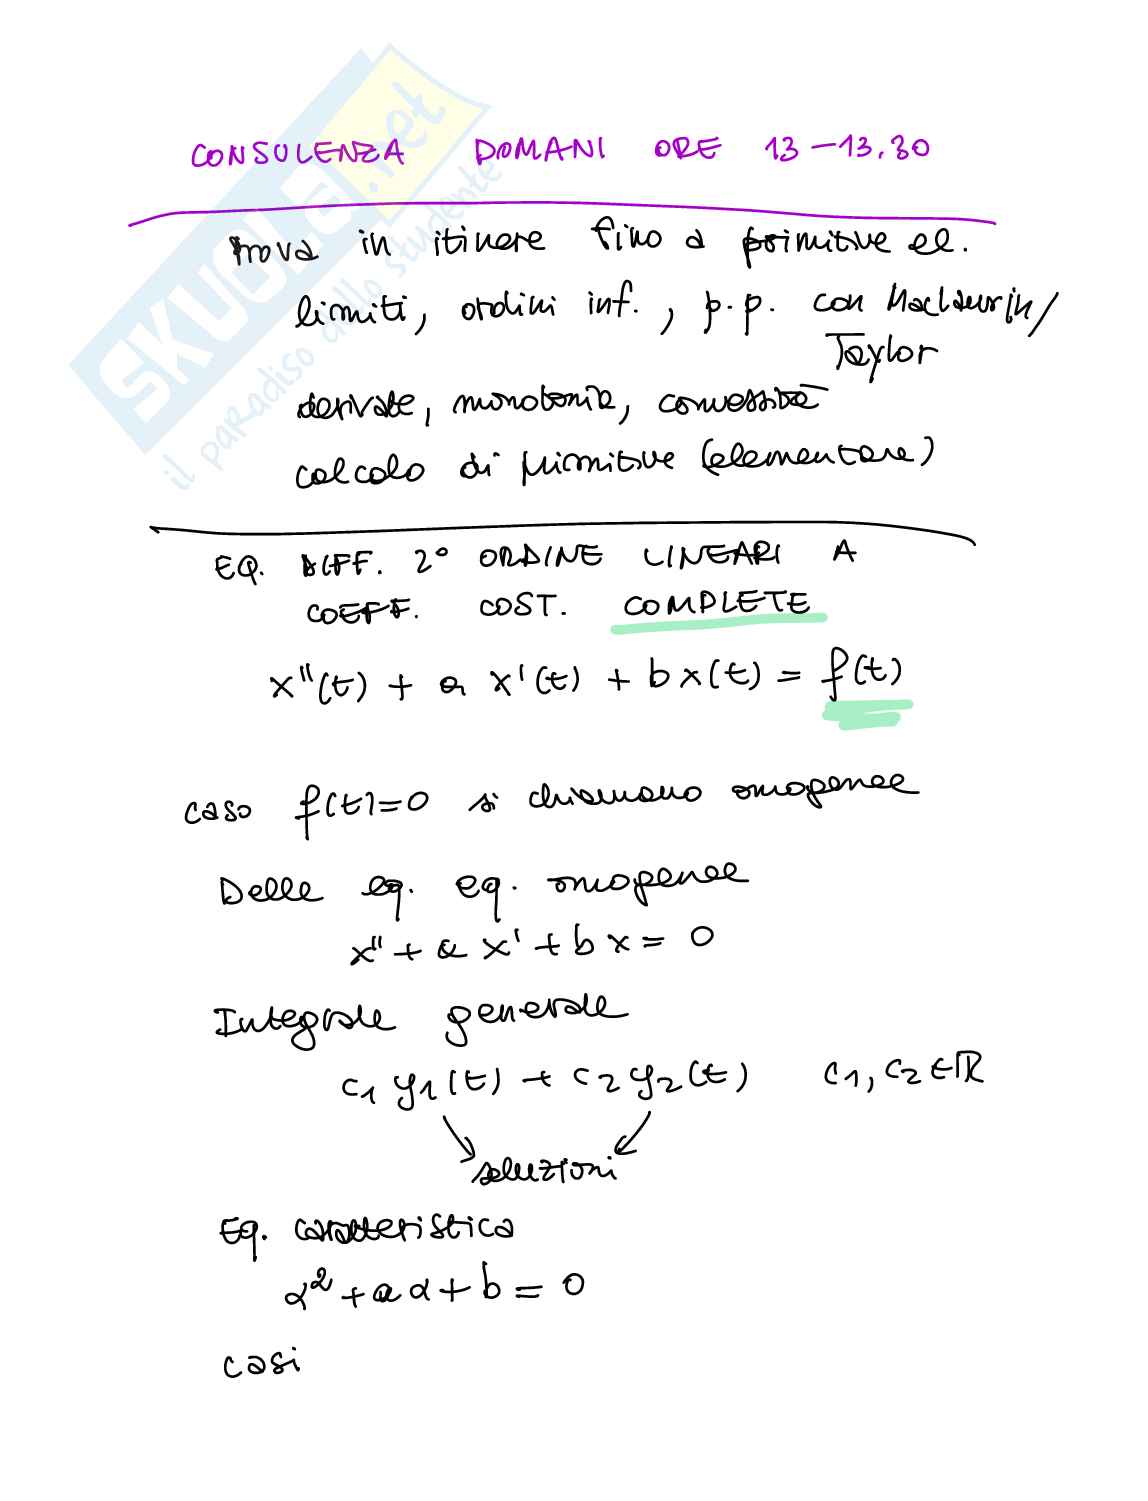 CONSULENZA DOMANI ORE 13-13.30
Prova in itinere fino a primitive el.
limiti, ordini inf., p.p. con Maclaurin/
Taylor
derivate, monotonia, convessità
calcolo di primitive (elementare)
EQ. DIFF. 2° ORDINE LINEARI A
COEFF. COST. COMPLETE
x''(t) + a x'(t) + b x(t) = f(t)
caso f(t)=0 si chiamano omogenee
Delle eq. eq. omogenee
x'' + a x' + b x = 0
Integrale generale
c1 y1(t) + c2 y2(t) c1, c2 ∈ ℝ
soluzioni
Eq. caratteristica
α² + a α + b = 0
casi
SKUOLA.net
il paradiso dello studente